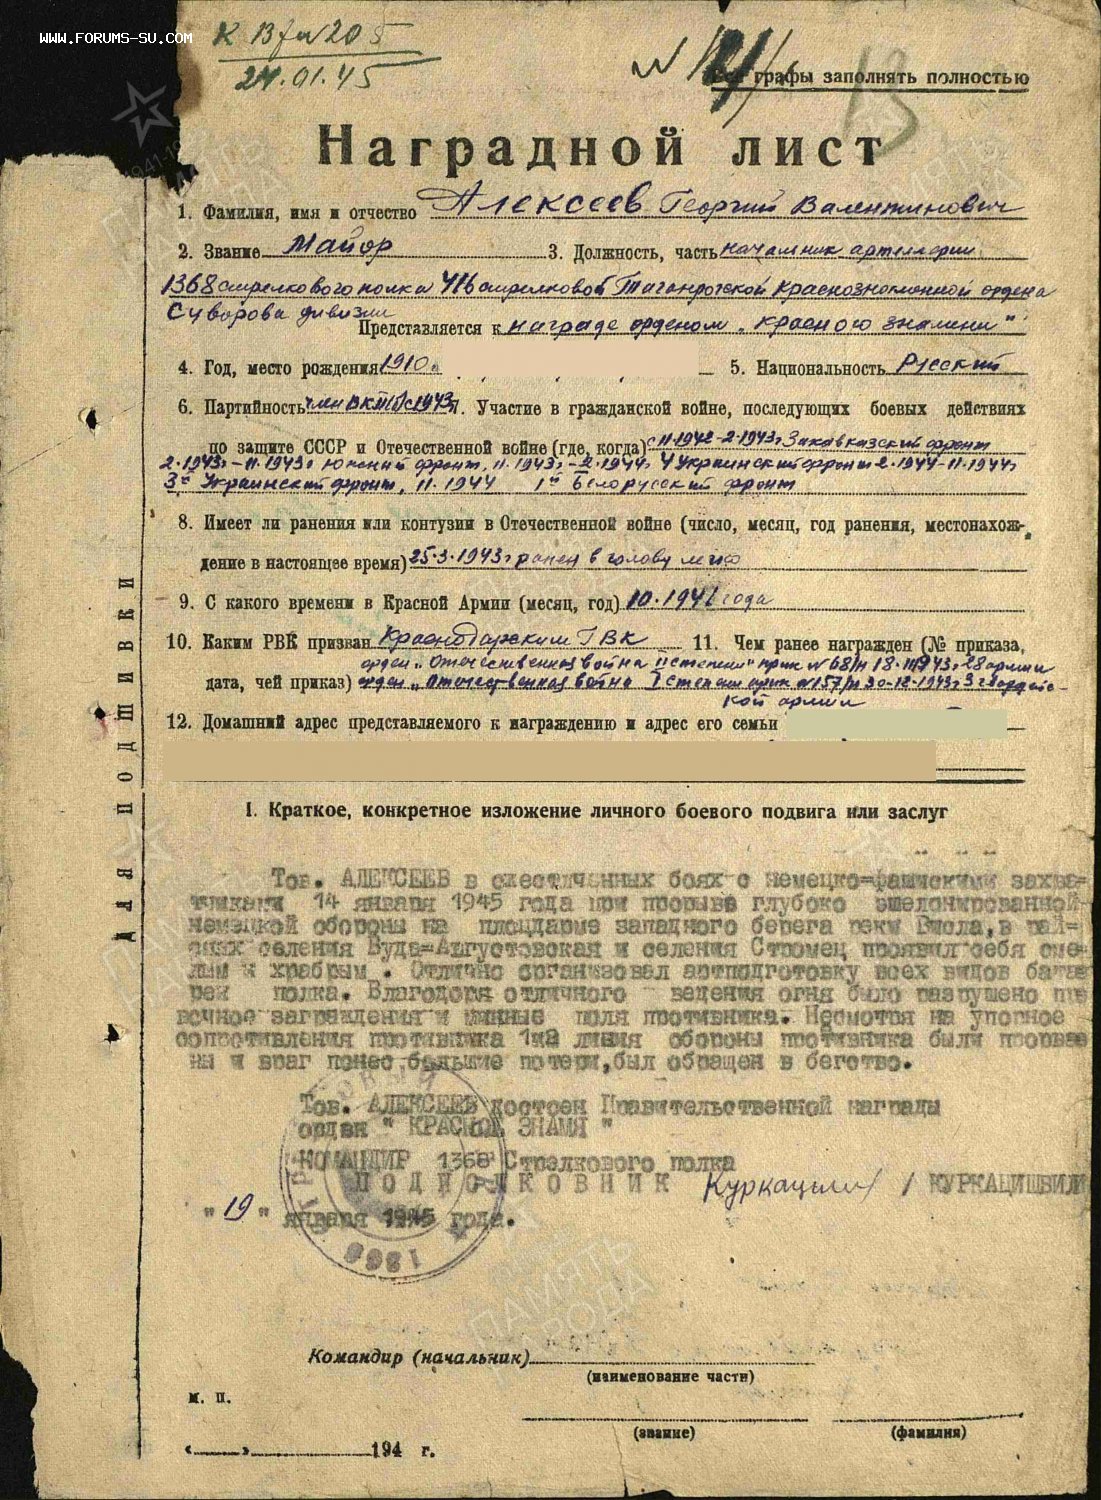 WWW.FORUMS-SU.COM
24.01.45
Все графы заполнять полностью
Наградной лист
1. Фамилия, имя и отчество Алексеев Георгий Валентинович
2. Звание Майор 3. Должность, часть начальник артеллерии
1368 стрелкового полка 416 стрелковой Таганрогской Краснознаменной ордена
Суворова дивизии
Представляется к награде орденом „Красного знамени"
4. Год, место рождения 1910г. 5. Национальность Русский
6. Партийность член ВКП(б) с 1943г. Участие в гражданской войне, последующих боевых действиях
по защите СССР и Отечественной войне (где, когда) с 11.1942-2.1943г Закавказский фронт
2.1943г-11.1943г Южний фронт, 11.1943г-2.1944г 4 Украинский фронт 2.1944-11.1944г
3й Украинский фронт, 11.1944 1й Белорусский фронт
8. Имеет ли ранения или контузии в Отечественной войне (число, месяц, год ранения, местонахож-
дение в настоящее время) 25.3.1943г ранен в голову легко
9. С какого времени в Красной Армии (месяц, год) 10.1941 года
10. Каким РВК призван Краснодарским ГВК 11. Чем ранее награжден (№ приказа,
орден „Отечественная война II степени" прик №68/н 18.III.1943г 28 армии
дата, чей приказ) орден „Отечественная война I степени прик №157/н 30-12-1943г 3 гвардейс-
кой армии
12. Домашний адрес представляемого к награждению и адрес его семьи
I. Краткое, конкретное изложение личного боевого подвига или заслуг
Тов. АЛЕКСЕЕВ в ожесточенных боях с немецко=фашискими захва=
тчиками 14 января 1945 года при прорыве глубоко эшелонированной
немецкой обороны на площдарме западного берега реки Висла, в рай=
онах селения Буда=Августовская и селения Стромец проявил себя сме=
лым и храбрым. Отлично организовал артподготовку всех видов бата=
рей полка. Благодоря отличного ведения огня было разрушено про
вочное заграждения и минные поля противника. Несмотря на упорное
сопротивления противника 1и2 линия обороны противника были прорва=
ны и враг понес большие потери, был обращен в бегство.
Тов. АЛЕКСЕЕВ достоен Правительственной награды
орден " КРАСНОЕ ЗНАМЯ "
КОМАНДИР 1368 Стрелкового полка
ПОДПОЛКОВНИК Куркацишв / КУРКАЦИШВИЛИ
" 19 " января 1945 года.
1368
Командир (начальник)
(наименование части)
м. п.
(звание) (фамилия)
« » 194 г.
ДЛЯ ПОДШИВКИ
ПАМЯТЬ
НАРОДА